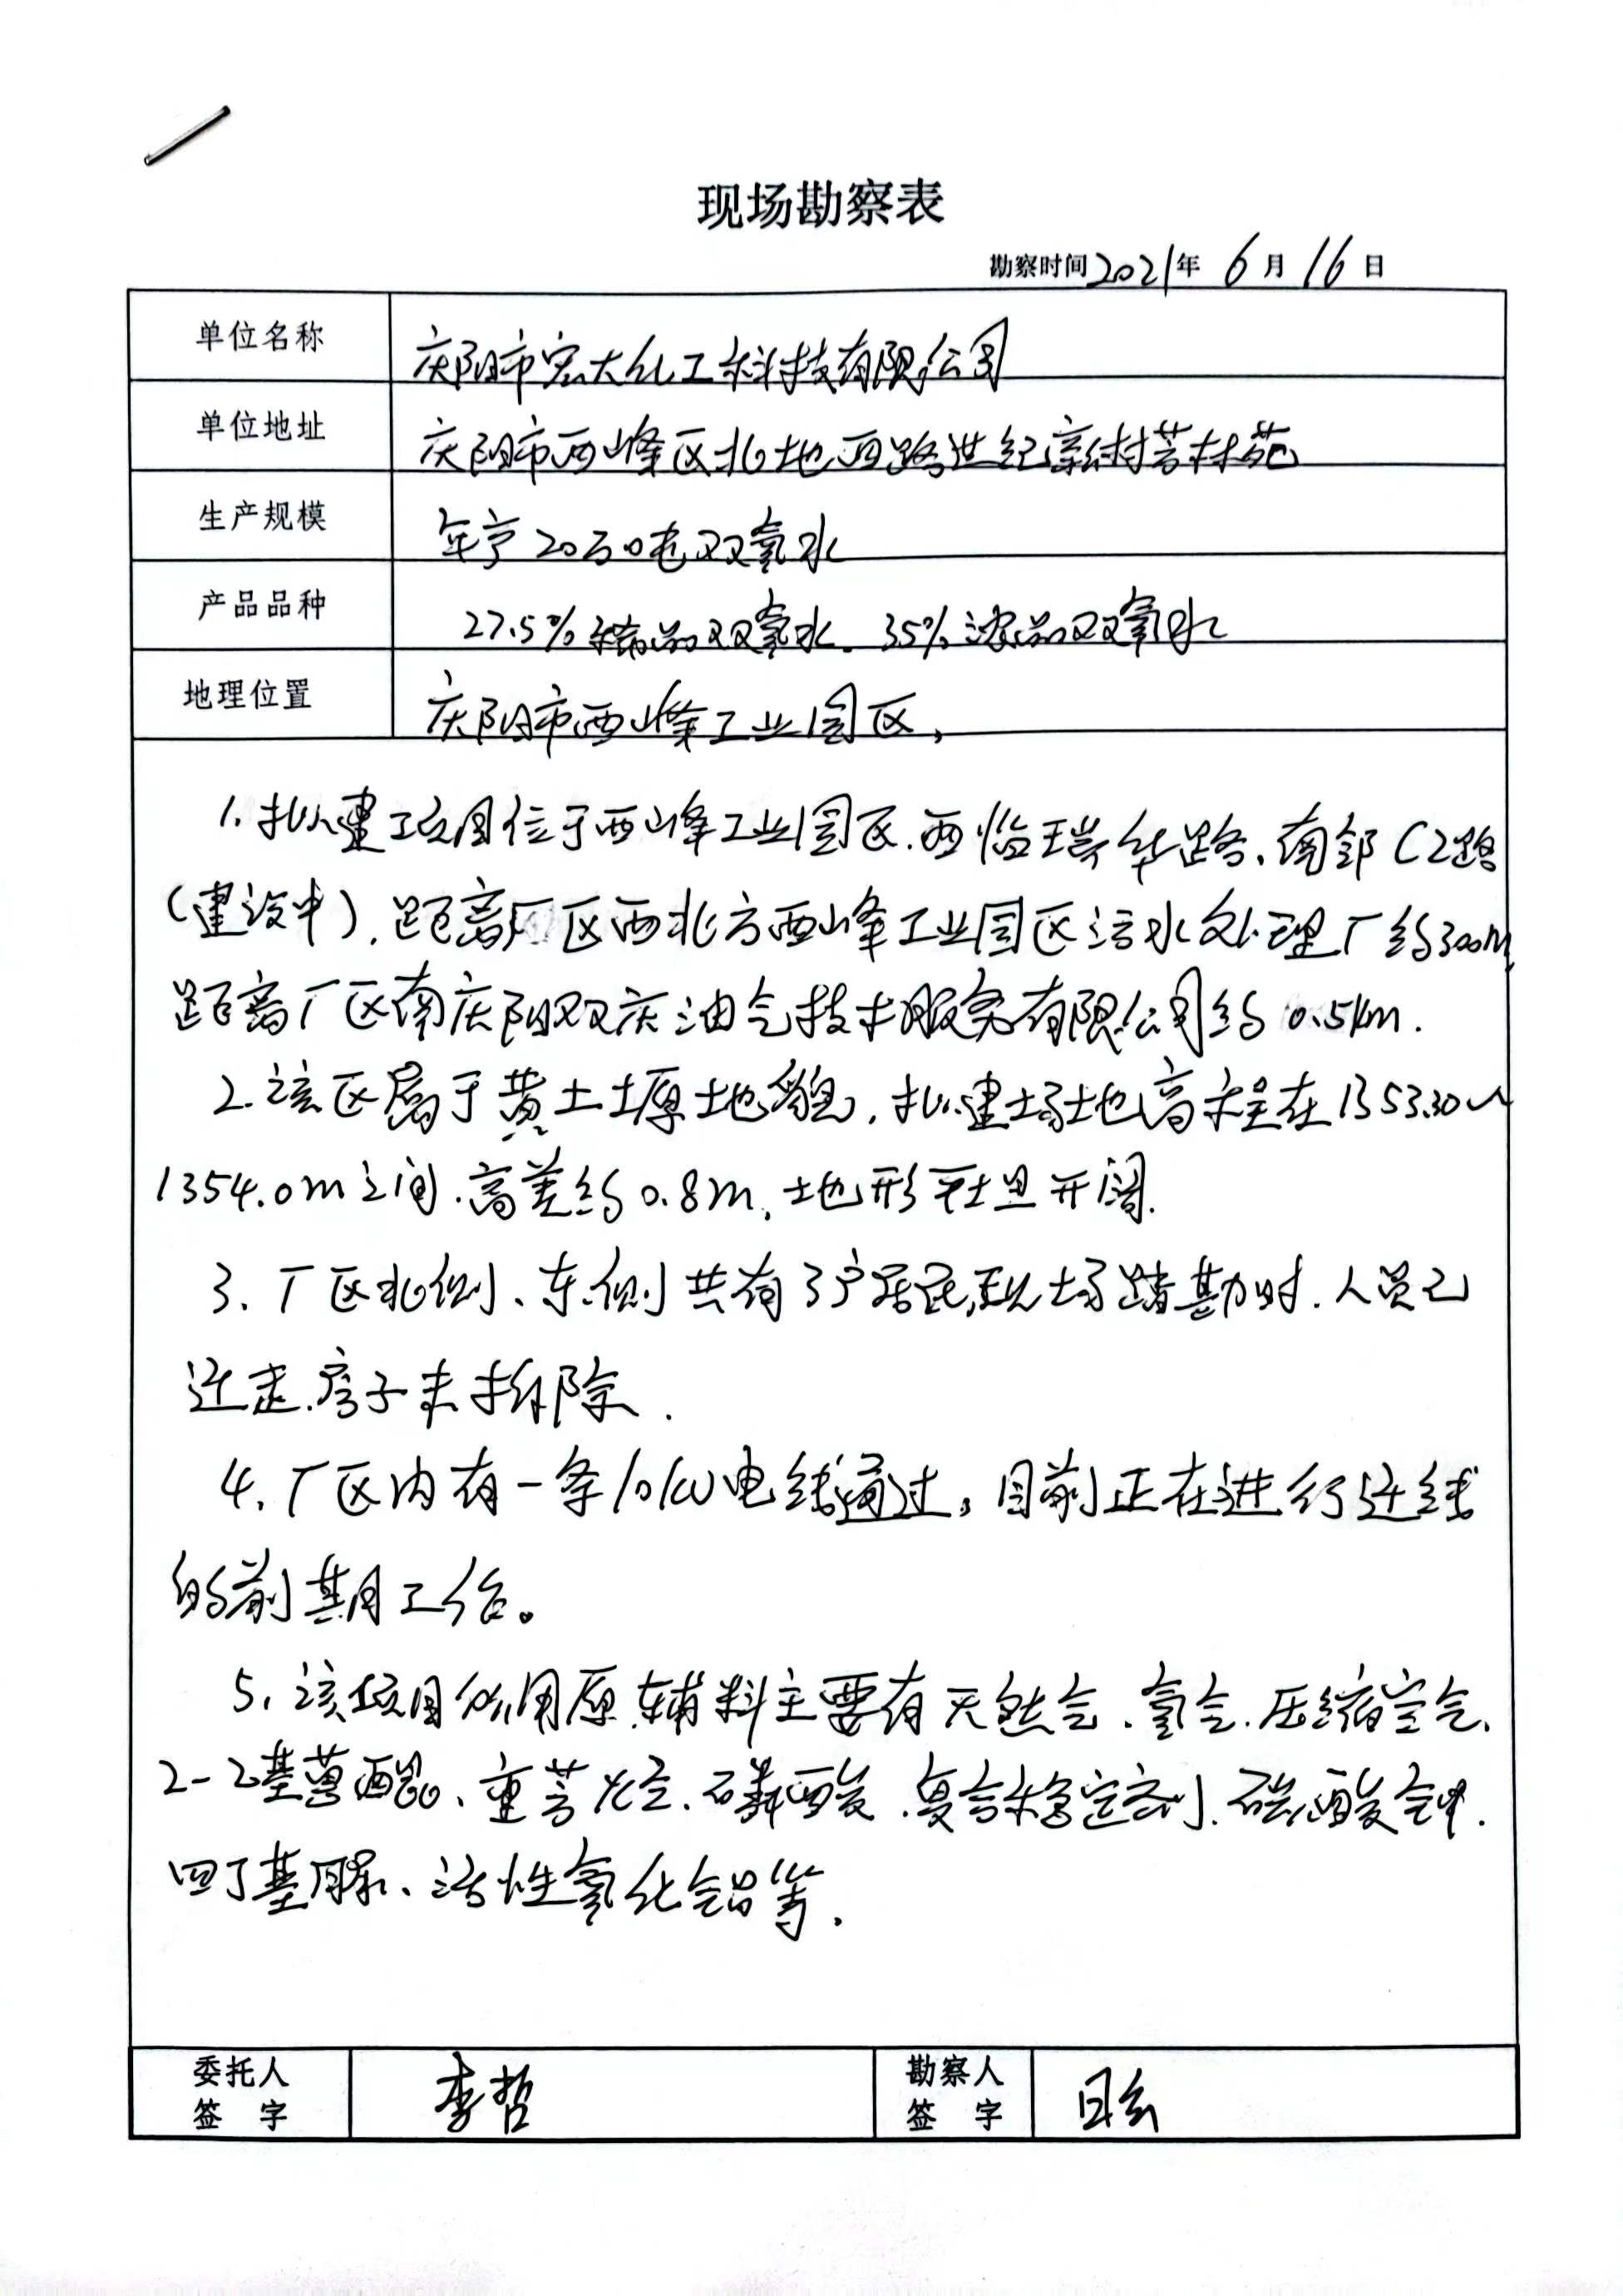 现场勘察表
勘察时间2021年 6月16日
单位名称 庆阳市宏大化工科技有限公司
单位地址 庆阳市西峰区北地西路世纪新村芳林苑
生产规模 年产20万吨双氧水
产品品种 27.5%稀品双氧水、35%浓品双氧水
地理位置 庆阳市西峰工业园区,
1.拟建项目位于西峰工业园区.西临瑞华路、南邻C2路
(建设中),距离厂区西北方西峰工业园区污水处理厂约300m,
距离厂区南庆阳双庆油气技术服务有限公司约0.5km.
2.该区属于黄土塬地貌,拟建场地高程在1353.30~
1354.0m之间.高差约0.8m,地形平坦开阔.
3、厂区北侧、东侧共有3户居民,现场踏勘时.人员已
迁走.房子未拆除.
4、厂区内有一条10kV电线通过,目前正在进行迁线
的前期工作。
5、该项目所用原、辅料主要有天然气、氢气、压缩空气、
2-乙基蒽醌、重芳烃、磷酸、复合稳定剂、碳酸钾、
四丁基脲、活性氧化铝等.
委托人 李哲 勘察人
签 字 签 字